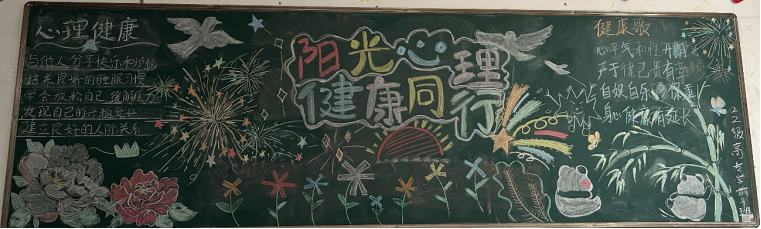 心理健康
与他人分享快乐和烦恼
培养良好的睡眠习惯
学会放松自己 缓解压力
发现自己的兴趣爱好
建立良好的人际关系
阳光心理
健康同行
健康歌
心平气和性开朗
严于律己贵有
自娱自乐 保重
身心健康 寿延长
22级高
班